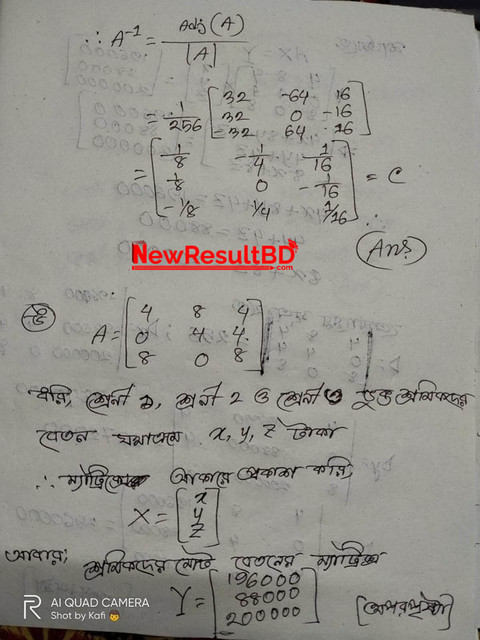 ∴ A⁻¹ = Adj(A) / |A|
= 1/256 [32 -64 16
32 0 -16
-32 64 16]
= [1/8 -1/4 1/16
1/8 0 -1/16
-1/8 1/4 1/16] = C
(Ans)
NewResultBD
.com
A = [4 8 4
0 4 4
8 0 8]
ধরি, শ্রেনী 1, শ্রেনী 2 ও শ্রেনী 3 ভুক্ত শ্রমিকদের
বেতন যথাক্রমে x, y, z টাকা
∴ আকারে প্রকাশ করি,
X = [x
y
z]
আবার, শ্রমিকদের মোট বেতনের ম্যাট্রিক্স
Y = [196000
88000
200000]
[অপর পৃষ্ঠা]
AI QUAD CAMERA
Shot by Kafi